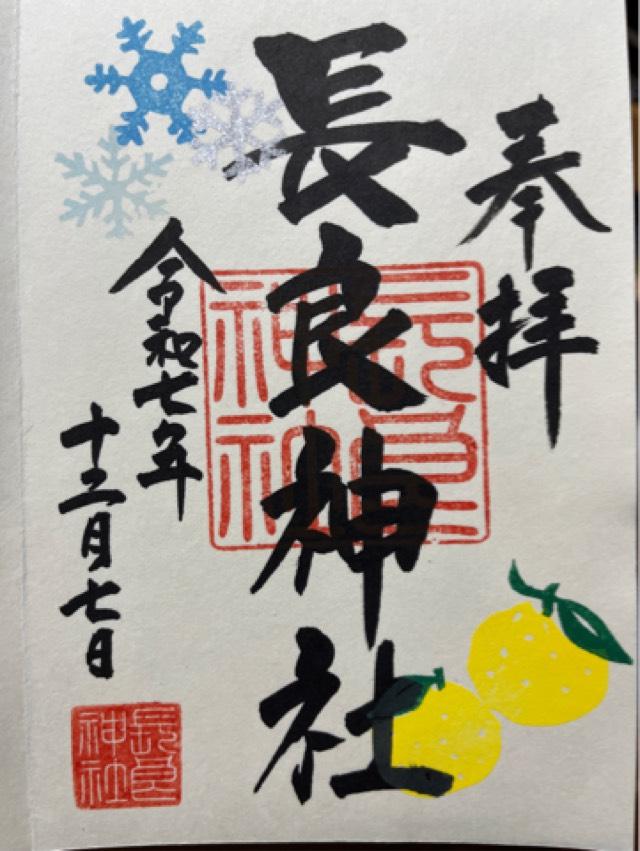 奉拝
長良神社
令和七年
十二月七日
長良
神社
長良
神社